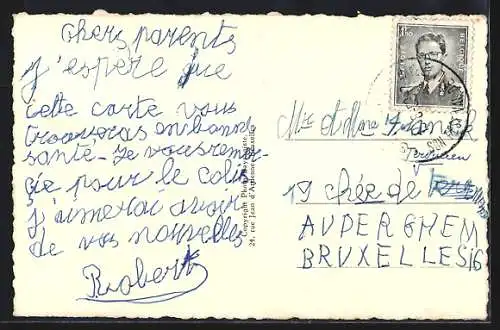 chers parents
j'espère que
cette carte vous
trouveras en bonne
santé. Je vous remer-
cie pour le colis
j'aimerai avoir
de vos nouvelles
Robert
Copyright Photo
24, rue Jean d'Ardenne
1,50
Mr et Mme
19 chée de
AUDERGHEM
BRUXELLES